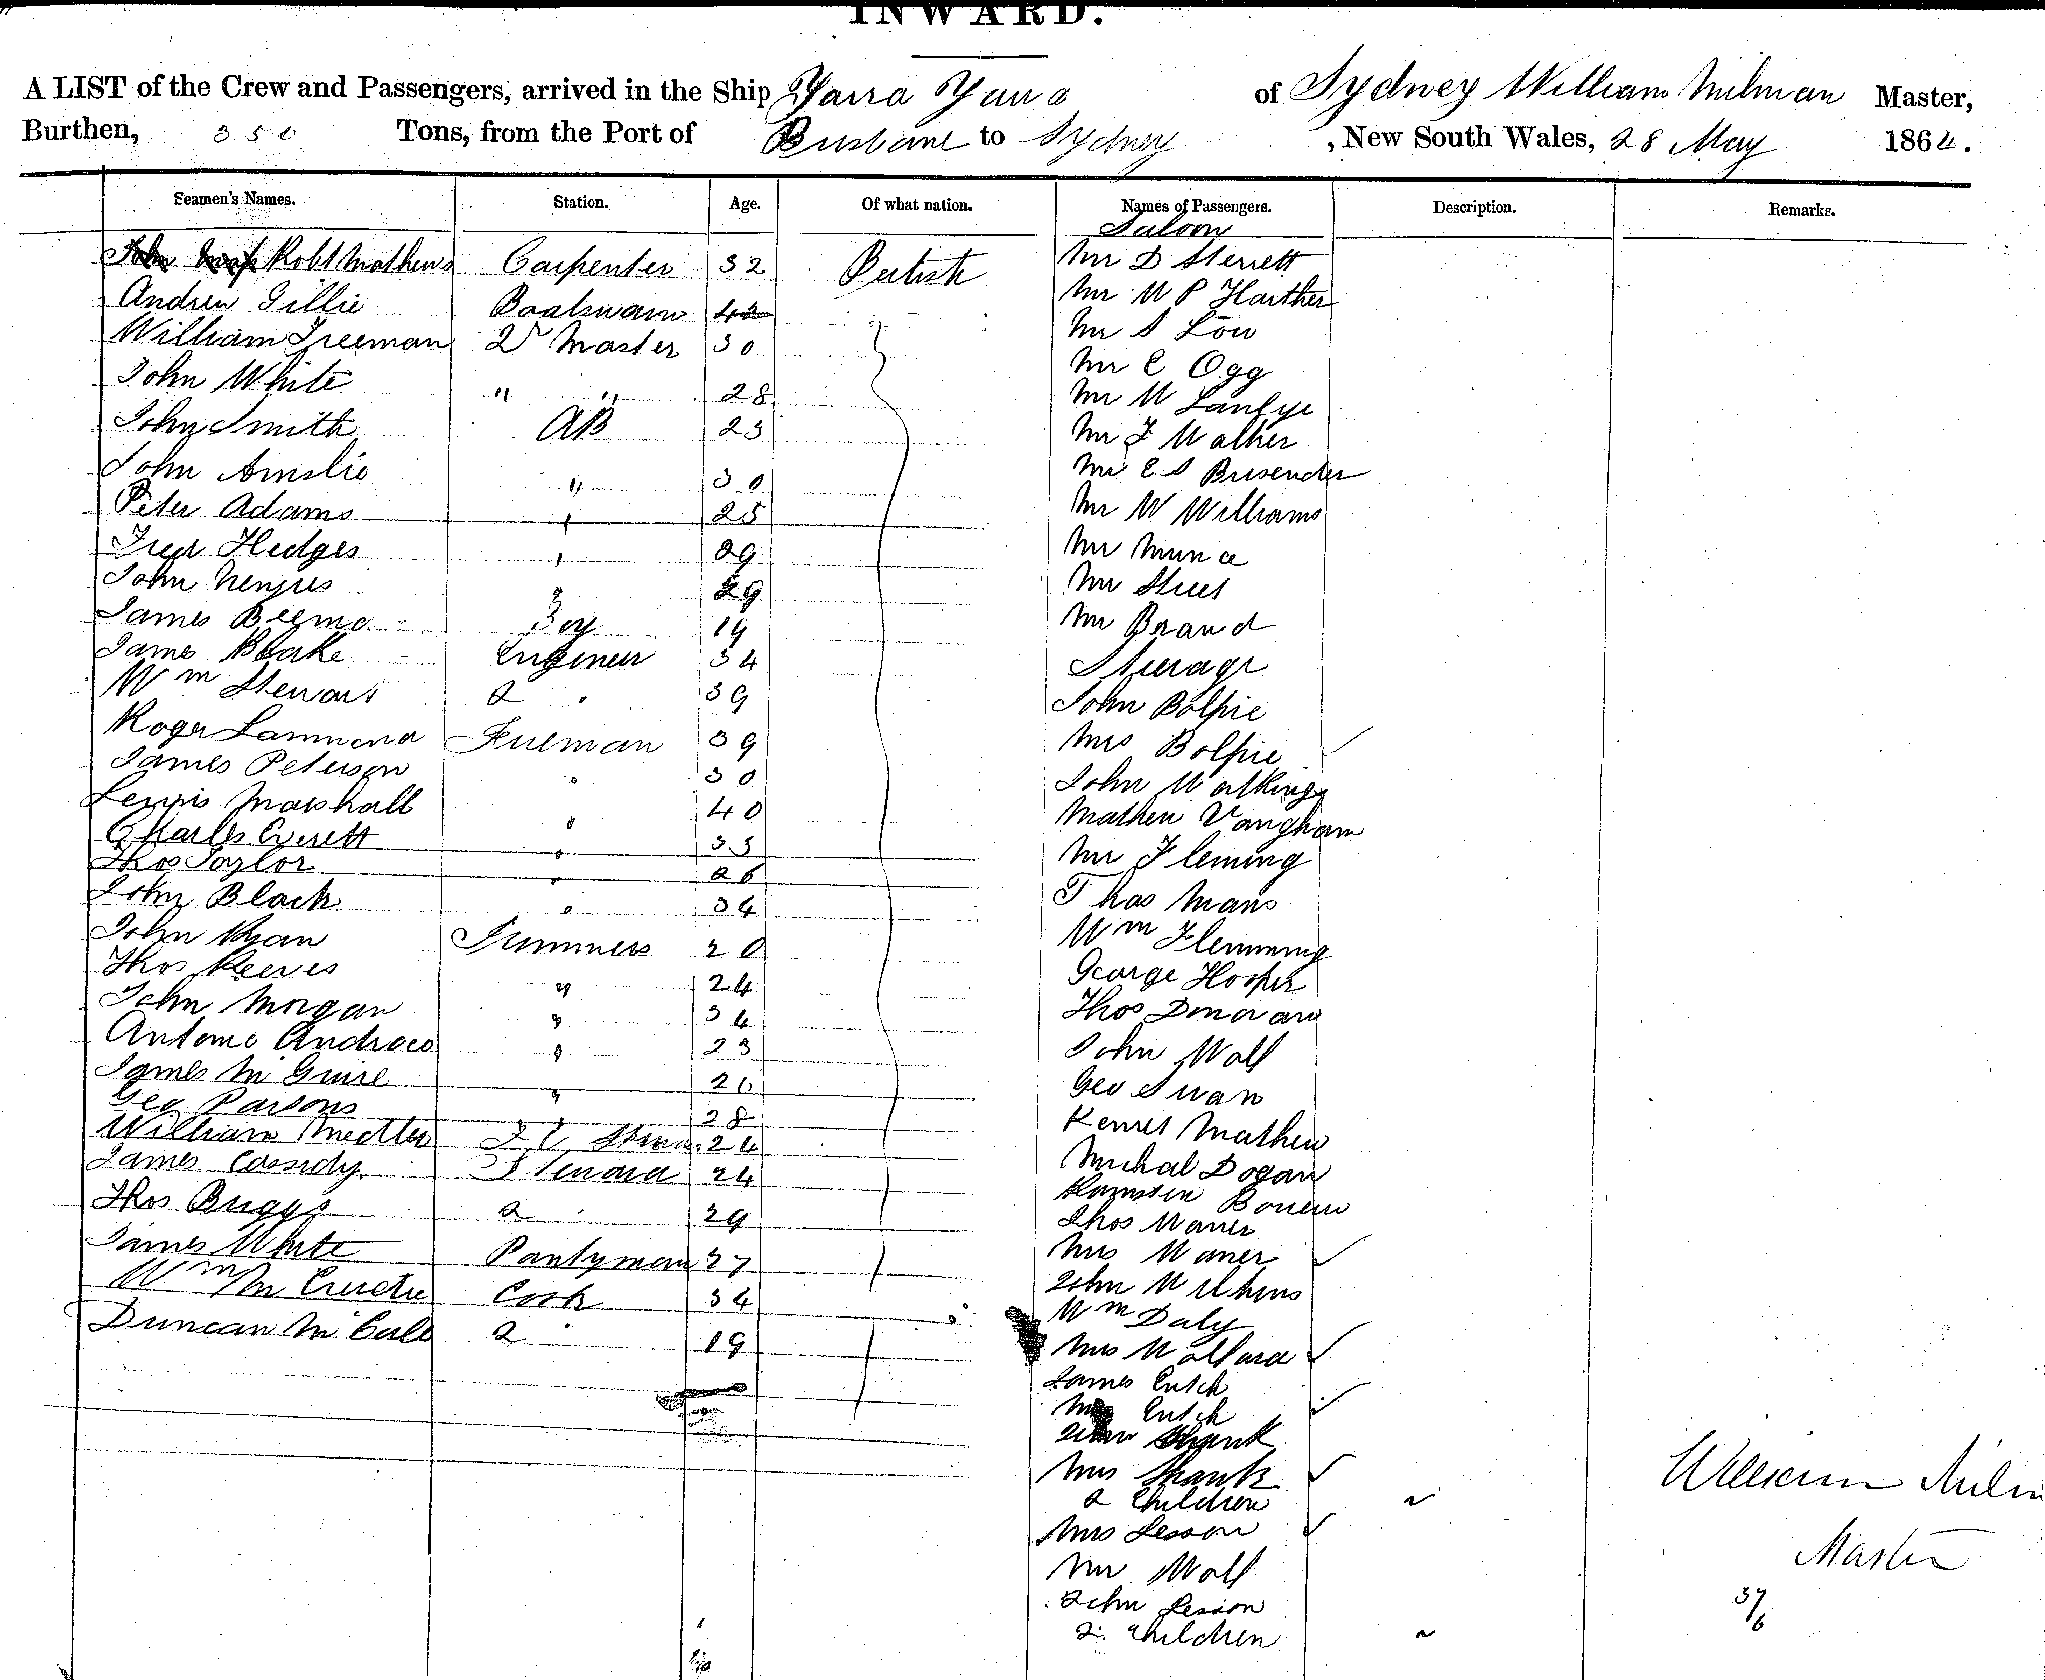 INWARD.
A LIST of the Crew and Passengers, arrived in the Ship Yarra Yarra of Sydney William Milman Master,
Burthen, 350 Tons, from the Port of Brisbane to Sydney, New South Wales, 28 May 1864.
Seamen's Names. Station. Age. Of what nation. Names of Passengers. Description. Remarks.
Saloon
John Robt Mathews Carpenter 32 British Mr D Sterrett
Andrew Gillie Boatswain 42 Mr W P
William Freeman 2r Master 30 Mr S Low
John White " " 28 Mr C Ogg
John Smith AB 23 Mr W
John Amslie " 30 Mr F Walker
Peter Adams " 25 Mr E S
Fred Hedges " 29 Mr W Williams
John 29 Mr Munce
James Boy 19 Mr
James Blake Engineer 34 Mr Brand
Wm Stewart 2 " 39 Steerage
Roger Lammond Fireman 39 John Bolpie
James Peterson " 30 Mrs Bolpie
Lewis Marshall " 40 John Watkings
Charles Everett " 33 Mathew Vangham
Thos Taylor " 26 Mr Fleming
John Black " 34 Thos Mans
John Ryan Trimmers 20 Wm Flemming
Thos Reeves " 24 George Hooper
John Morgan " 34 Thos Donovan
Antonio Andreas " 23 John Wall
James McGuire " 26 Geo Swan
Geo Parsons " 28 Mathew
William 24 Michal Dogan
James Cassidy Steward 24
Thos Briggs 2 " 29 Thos Waner
James White Pantryman 27 Mrs Waner
Wm Mc Cook 34 John Wilkins
Duncan McCall 2 " 19 Wm Daly
Mrs Wallard
James Cutch
Mrs Cutch
Shank
Mrs Shank
2 Children
Mrs Lesson
Mr Wall
John Lesson
2 Children
William Milm
Master
37/6